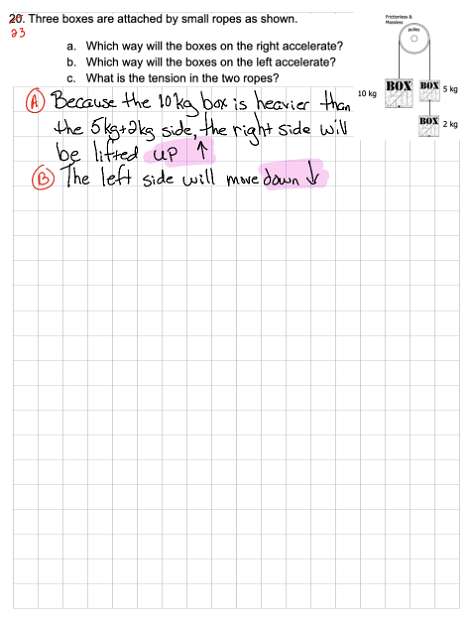 20. Three boxes are attached by small ropes as shown.
23
a. Which way will the boxes on the right accelerate?
b. Which way will the boxes on the left accelerate?
c. What is the tension in the two ropes?
Frictionless &
Massless
pulley
10 kg BOX BOX 5 kg
BOX 2 kg
A Because the 10kg box is heavier than
the 5kg+2kg side, the right side will
be lifted up ↑
B The left side will move down ↓